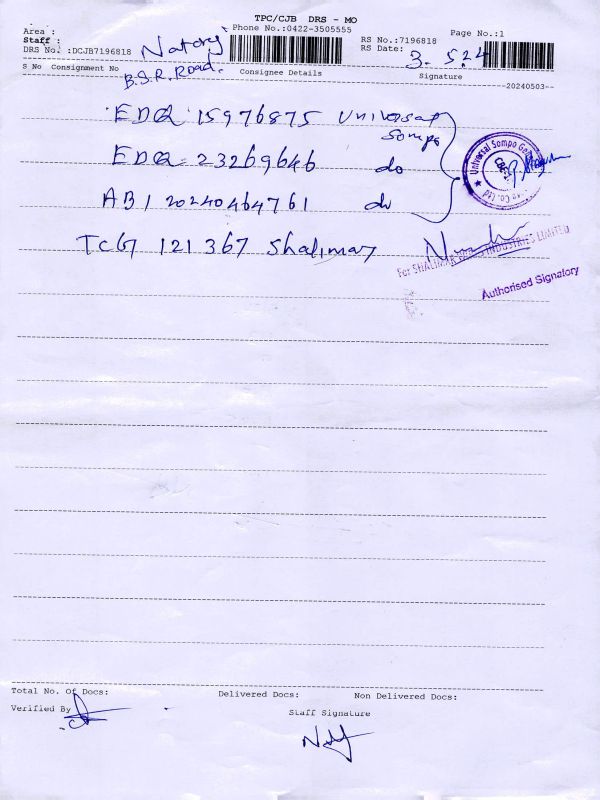 TPC/CJB DRS - MO
Area : Phone No.:0422-3505555 Page No.:1
Staff : RS No.:7196818
DRS No. :DCJB7196818 RS Date: 3.5.24
S No Consignment No B.S.R. Road. Consignee Details Signature
--20240503--
EDQ 15976875 Universal
Sompo
EDQ 23269646 do
AB1 20240464761 do
Universal Sompo Ge
Co. Ltd
TCG 121367 Shalimar
For SHALIMAR INDUSTRIES LIMITED
Authorised Signatory
Total No. Of Docs: Delivered Docs: Non Delivered Docs:
Verified By Staff Signature